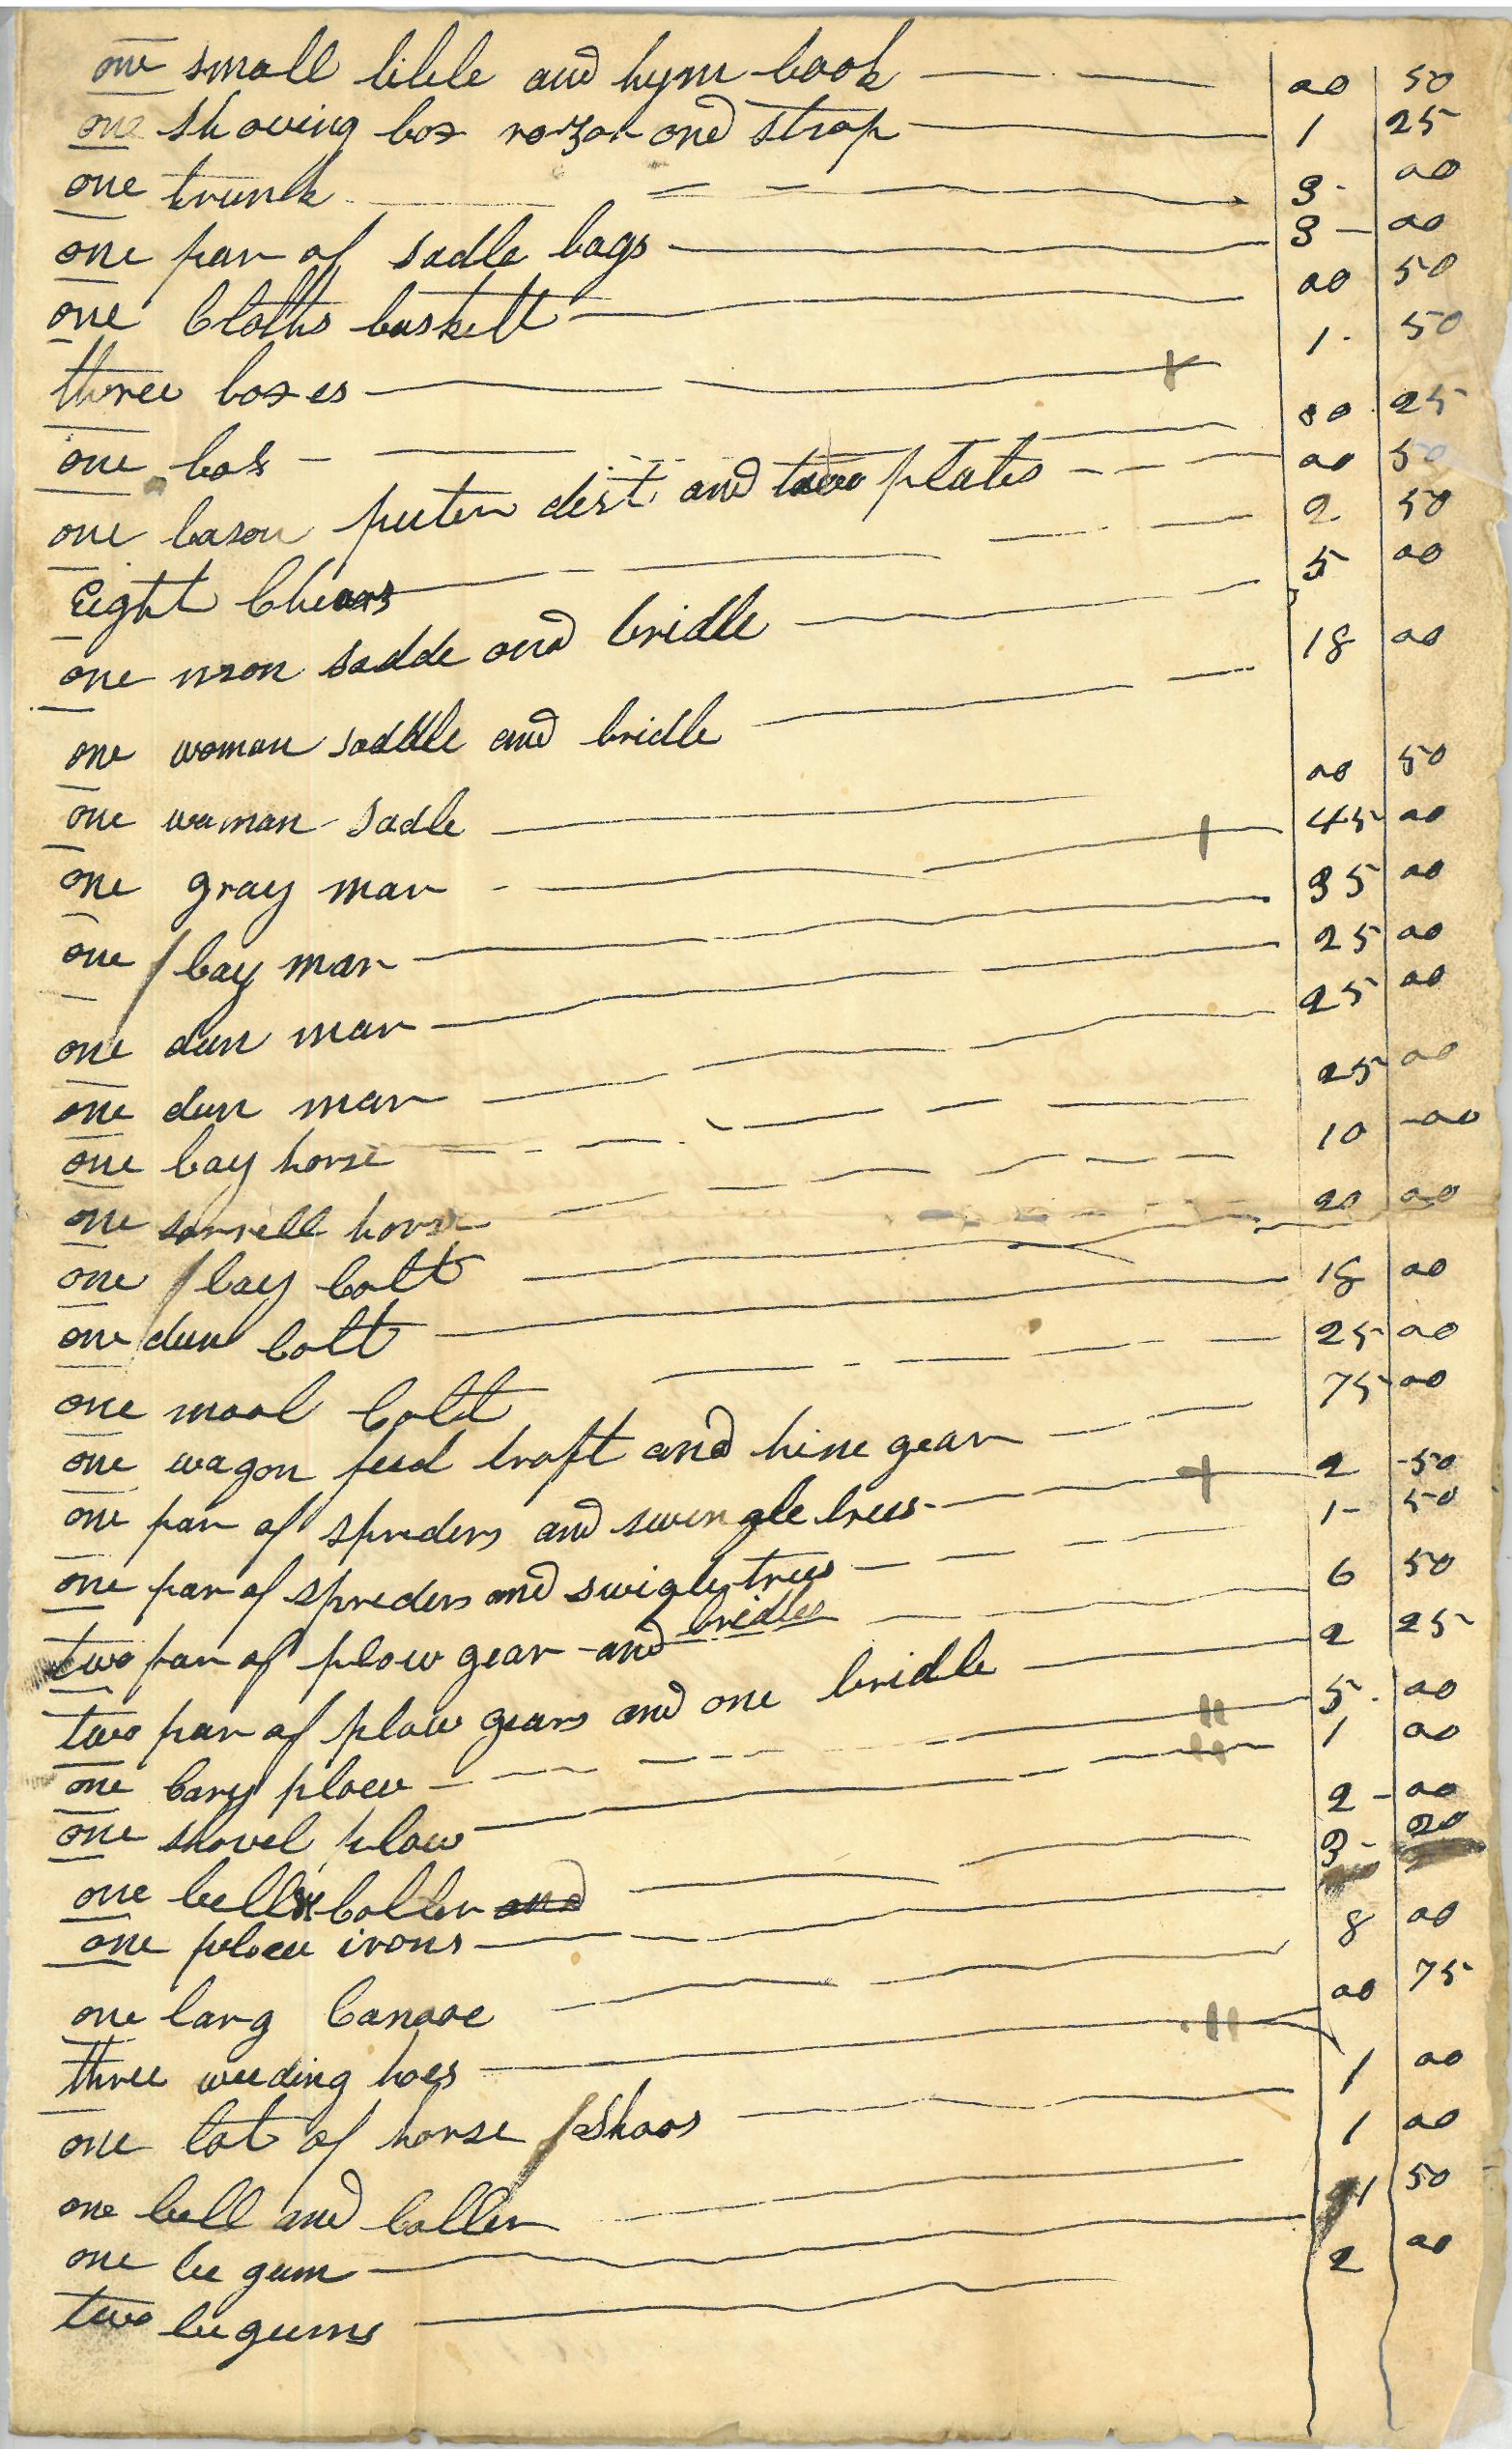 one small bible and hym book 00 50
one shaving box razor and strap 1 25
one trunk 3 00
one par of sadle bags 3 00
one Cloths baskett 00 50
three boxes 1 50
one box 00 25
one bason peuter dist and two plates 00 50
Eight Chears 2 50
one man sadde and bridle 5 00
one woman saddle and bridle 18 00
one woman sadle 00 50
one gray mar 45 00
one bay mar 35 00
one dun mar 25 00
one dun mar 25 00
one bay horse 25 00
one sorrell horse 10 00
one bay Colt 20 00
one dun Colt 18 00
one mool Colt 25 00
one wagon feed traft and hine gear 75 00
one par of spreders and swingle trees 2 50
one par of spreders and swigle trees 1 50
two par of plow gear and bridles 6 50
two par of plow gears and one bridle 2 25
one Cary plow 5 00
one shovel plow 1 00
one bell & Coller and 2 00
one plow irons 3
one larg Canooe 8 00
three weeding hoes 00 75
one lot of horse Shoos 1 00
one bell and Coller 1 00
one be gum 1 50
two be gums 2 00